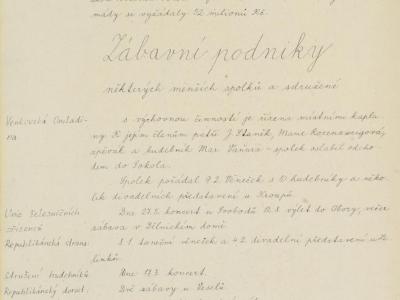 mády se vyžádaly 12 milionů Kč.
Zábavní podniky
některých menších spolků a sdružené
Venkovská Omladi- s výchovnou činností je řízena místními kaplany
na. K jejím členům patří J. Staník, Marie Rozenzweigová,
zpěvák a hudebník Mar. Vaňura - spolek oslabil odcho-
dem do Sokola.
Spolek pořádal 9.2. Věneček s 10 hudebníky a něko-
lik divadelních představení u Kroupů.
Unie železničních Dne 27.5. koncert u Svobodů 2.8. výlet do Obory, večer
zřízenců zábava v Dělnickém domě
Republikánská strana: 5.1. taneční věneček a 4.2. divadelní představení u
linků.
Sdružení hudebníků Dne 17.3. koncert.
Republikánský dorost: Dvě zábavy u Veselů.